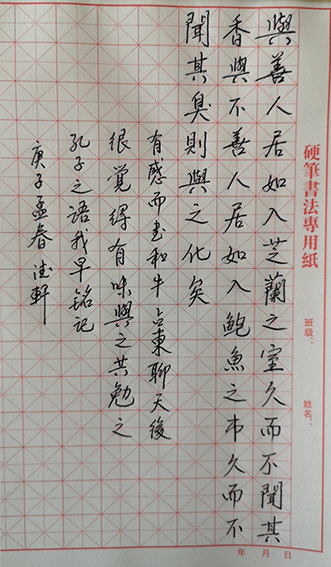 硬筆書法專用紙
班級：
姓名：
與善人居如入芝蘭之室久而不聞其
香與不善人居如入鮑魚之市久而不
聞其臭則與之化矣
有感而書和牛占東聊天後
很覺得有味與之共勉之
孔子之語我早銘記
庚子孟春 法軒
年 月 日